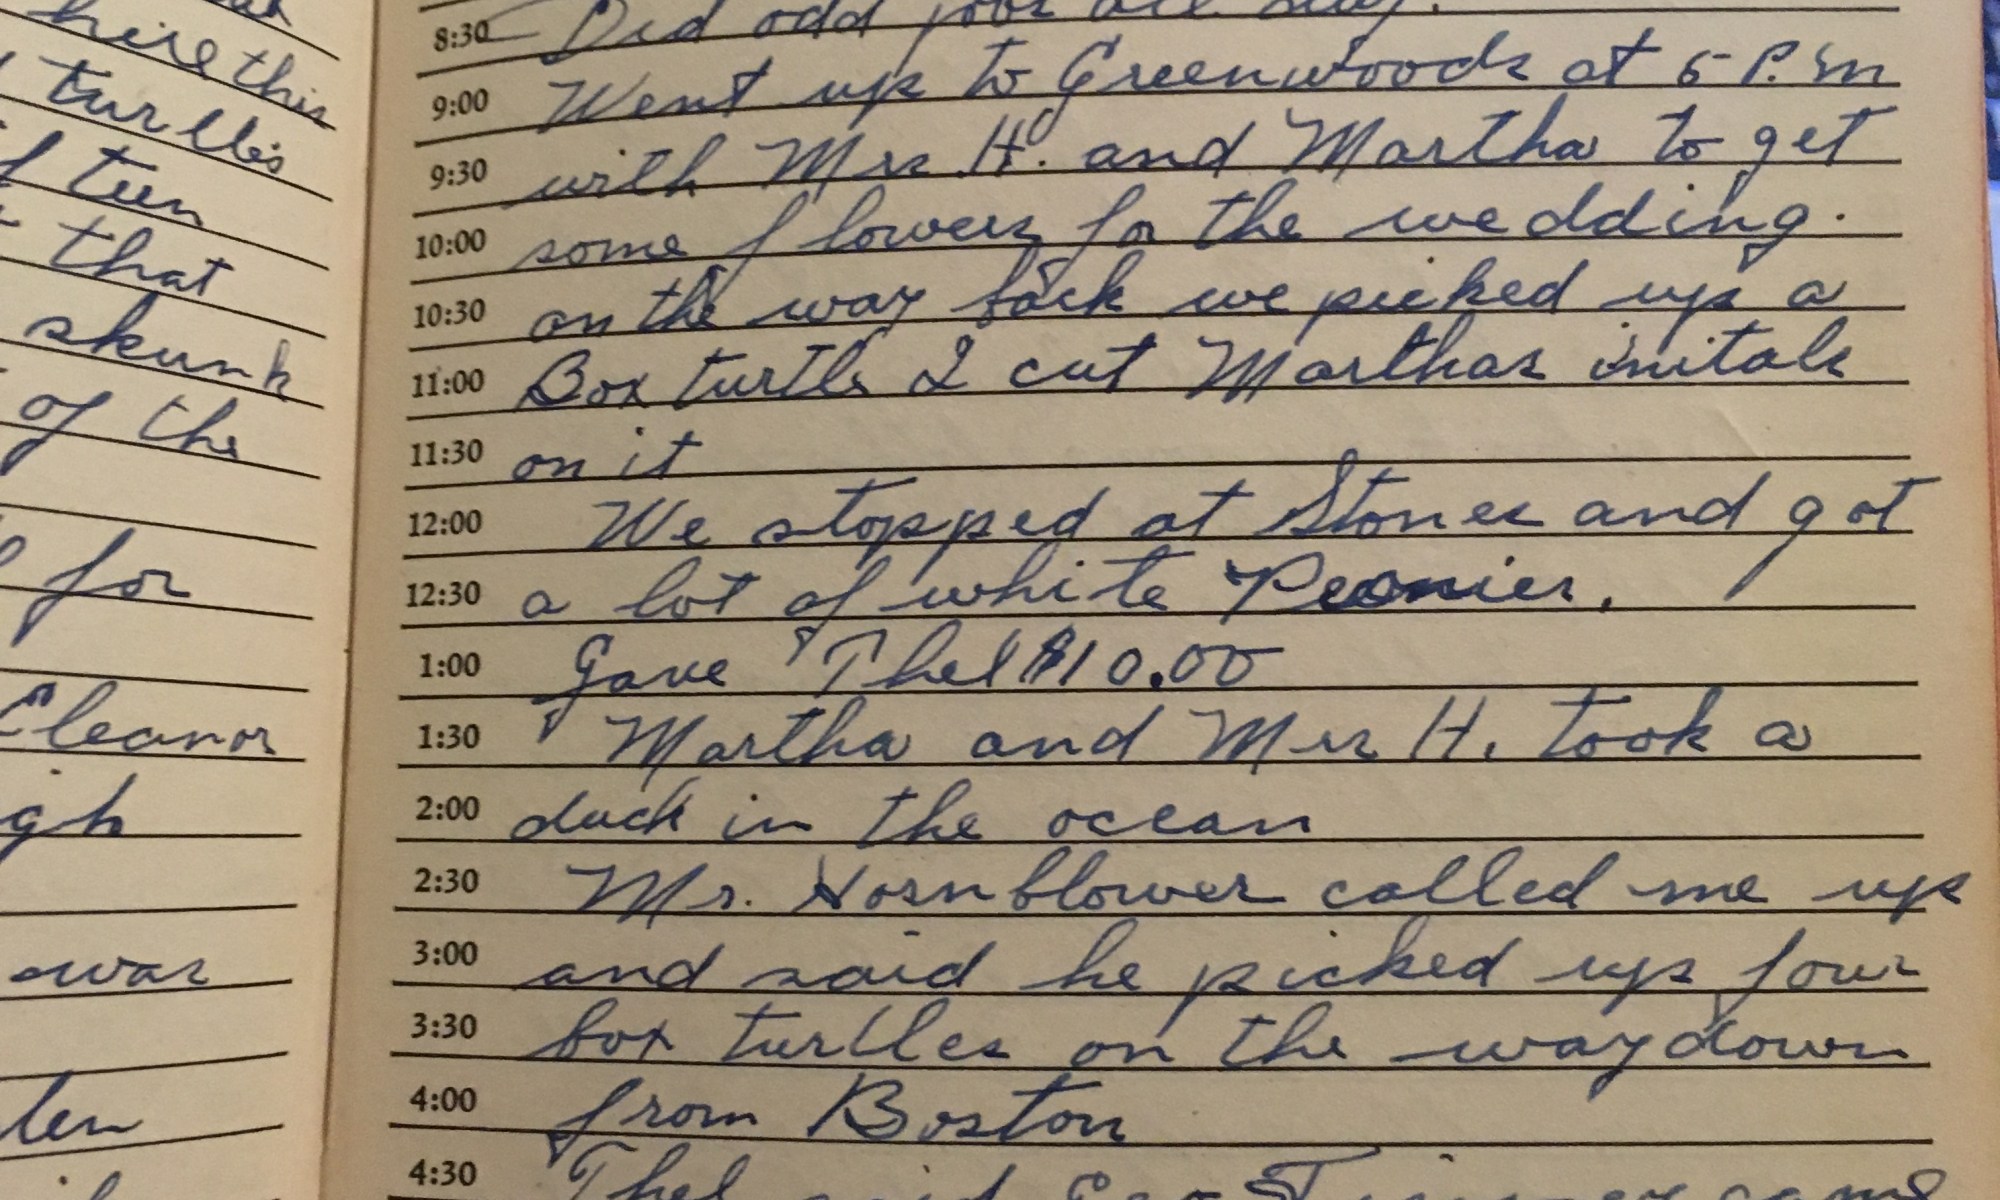 hire this
turtles
ten
that
skunk
of the
for
Eleanor
gh
was
len
8:30 Did odd jobs all day.
9:00 Went up to Greenwoods at 5 P.m
9:30 with Mrs H. and Martha to get
10:00 some flowers for the wedding.
10:30 on the way back we picked up a
11:00 Box turtle I cut Marthas initals
11:30 on it
12:00 We stopped at Stones and got
12:30 a lot of white Peonies.
1:00 Gave Thel $10.00
1:30 Martha and Mrs H. took a
2:00 duck in the ocean
2:30 Mr. Hornblower called me up
3:00 and said he picked up four
3:30 box turtles on the way down
4:00 from Boston
4:30 Thel said Geo came